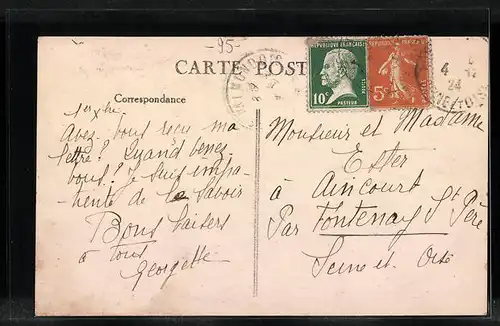 -95-
CARTE POST
RÉPUBLIQUE FRANÇAISE
10c
POSTES
PASTEUR
RÉPUBLIQUE FRANÇAISE
5c
POSTES
4
24
Correspondance
Avez-vous reçu ma
lettre? Quand venez
vous? Je suis impa-
tiente de le savoir
Bons baisers
à tous
Georgette
Monsieur et Madame
Ester
à Aincourt
Par Fontenay St Père
Seine et Oise